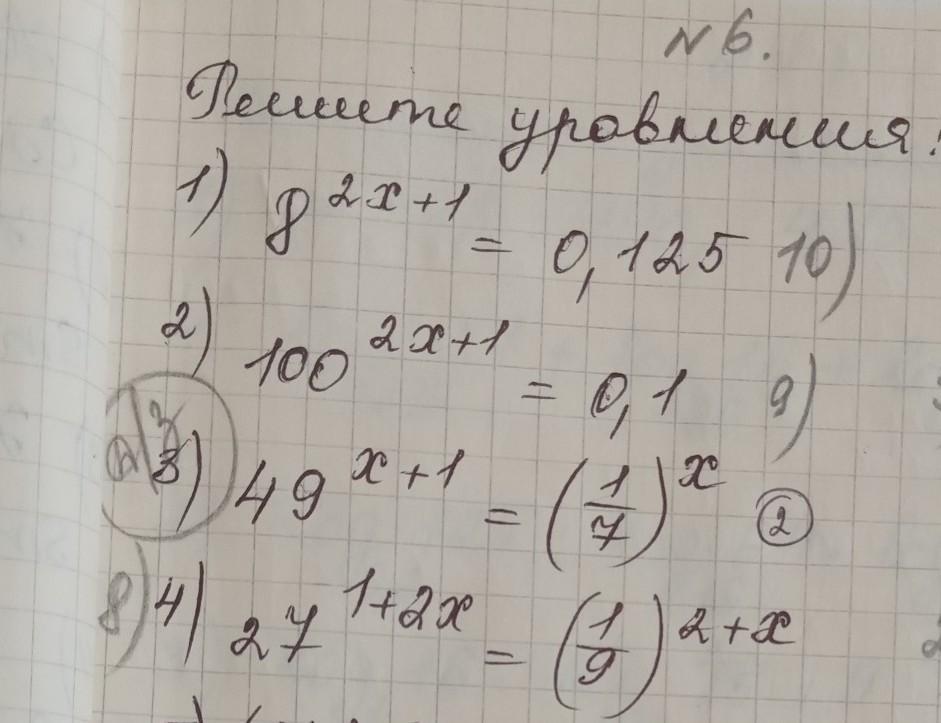 № 6.
Решите уравнения:
1) 8^(2x+1) = 0,125 10)
2) 100^(2x+1) = 0,1 9)
3) 49^(x+1) = (1/7)^x ②
8) 4) 27^(1+2x) = (1/9)^(2+x)